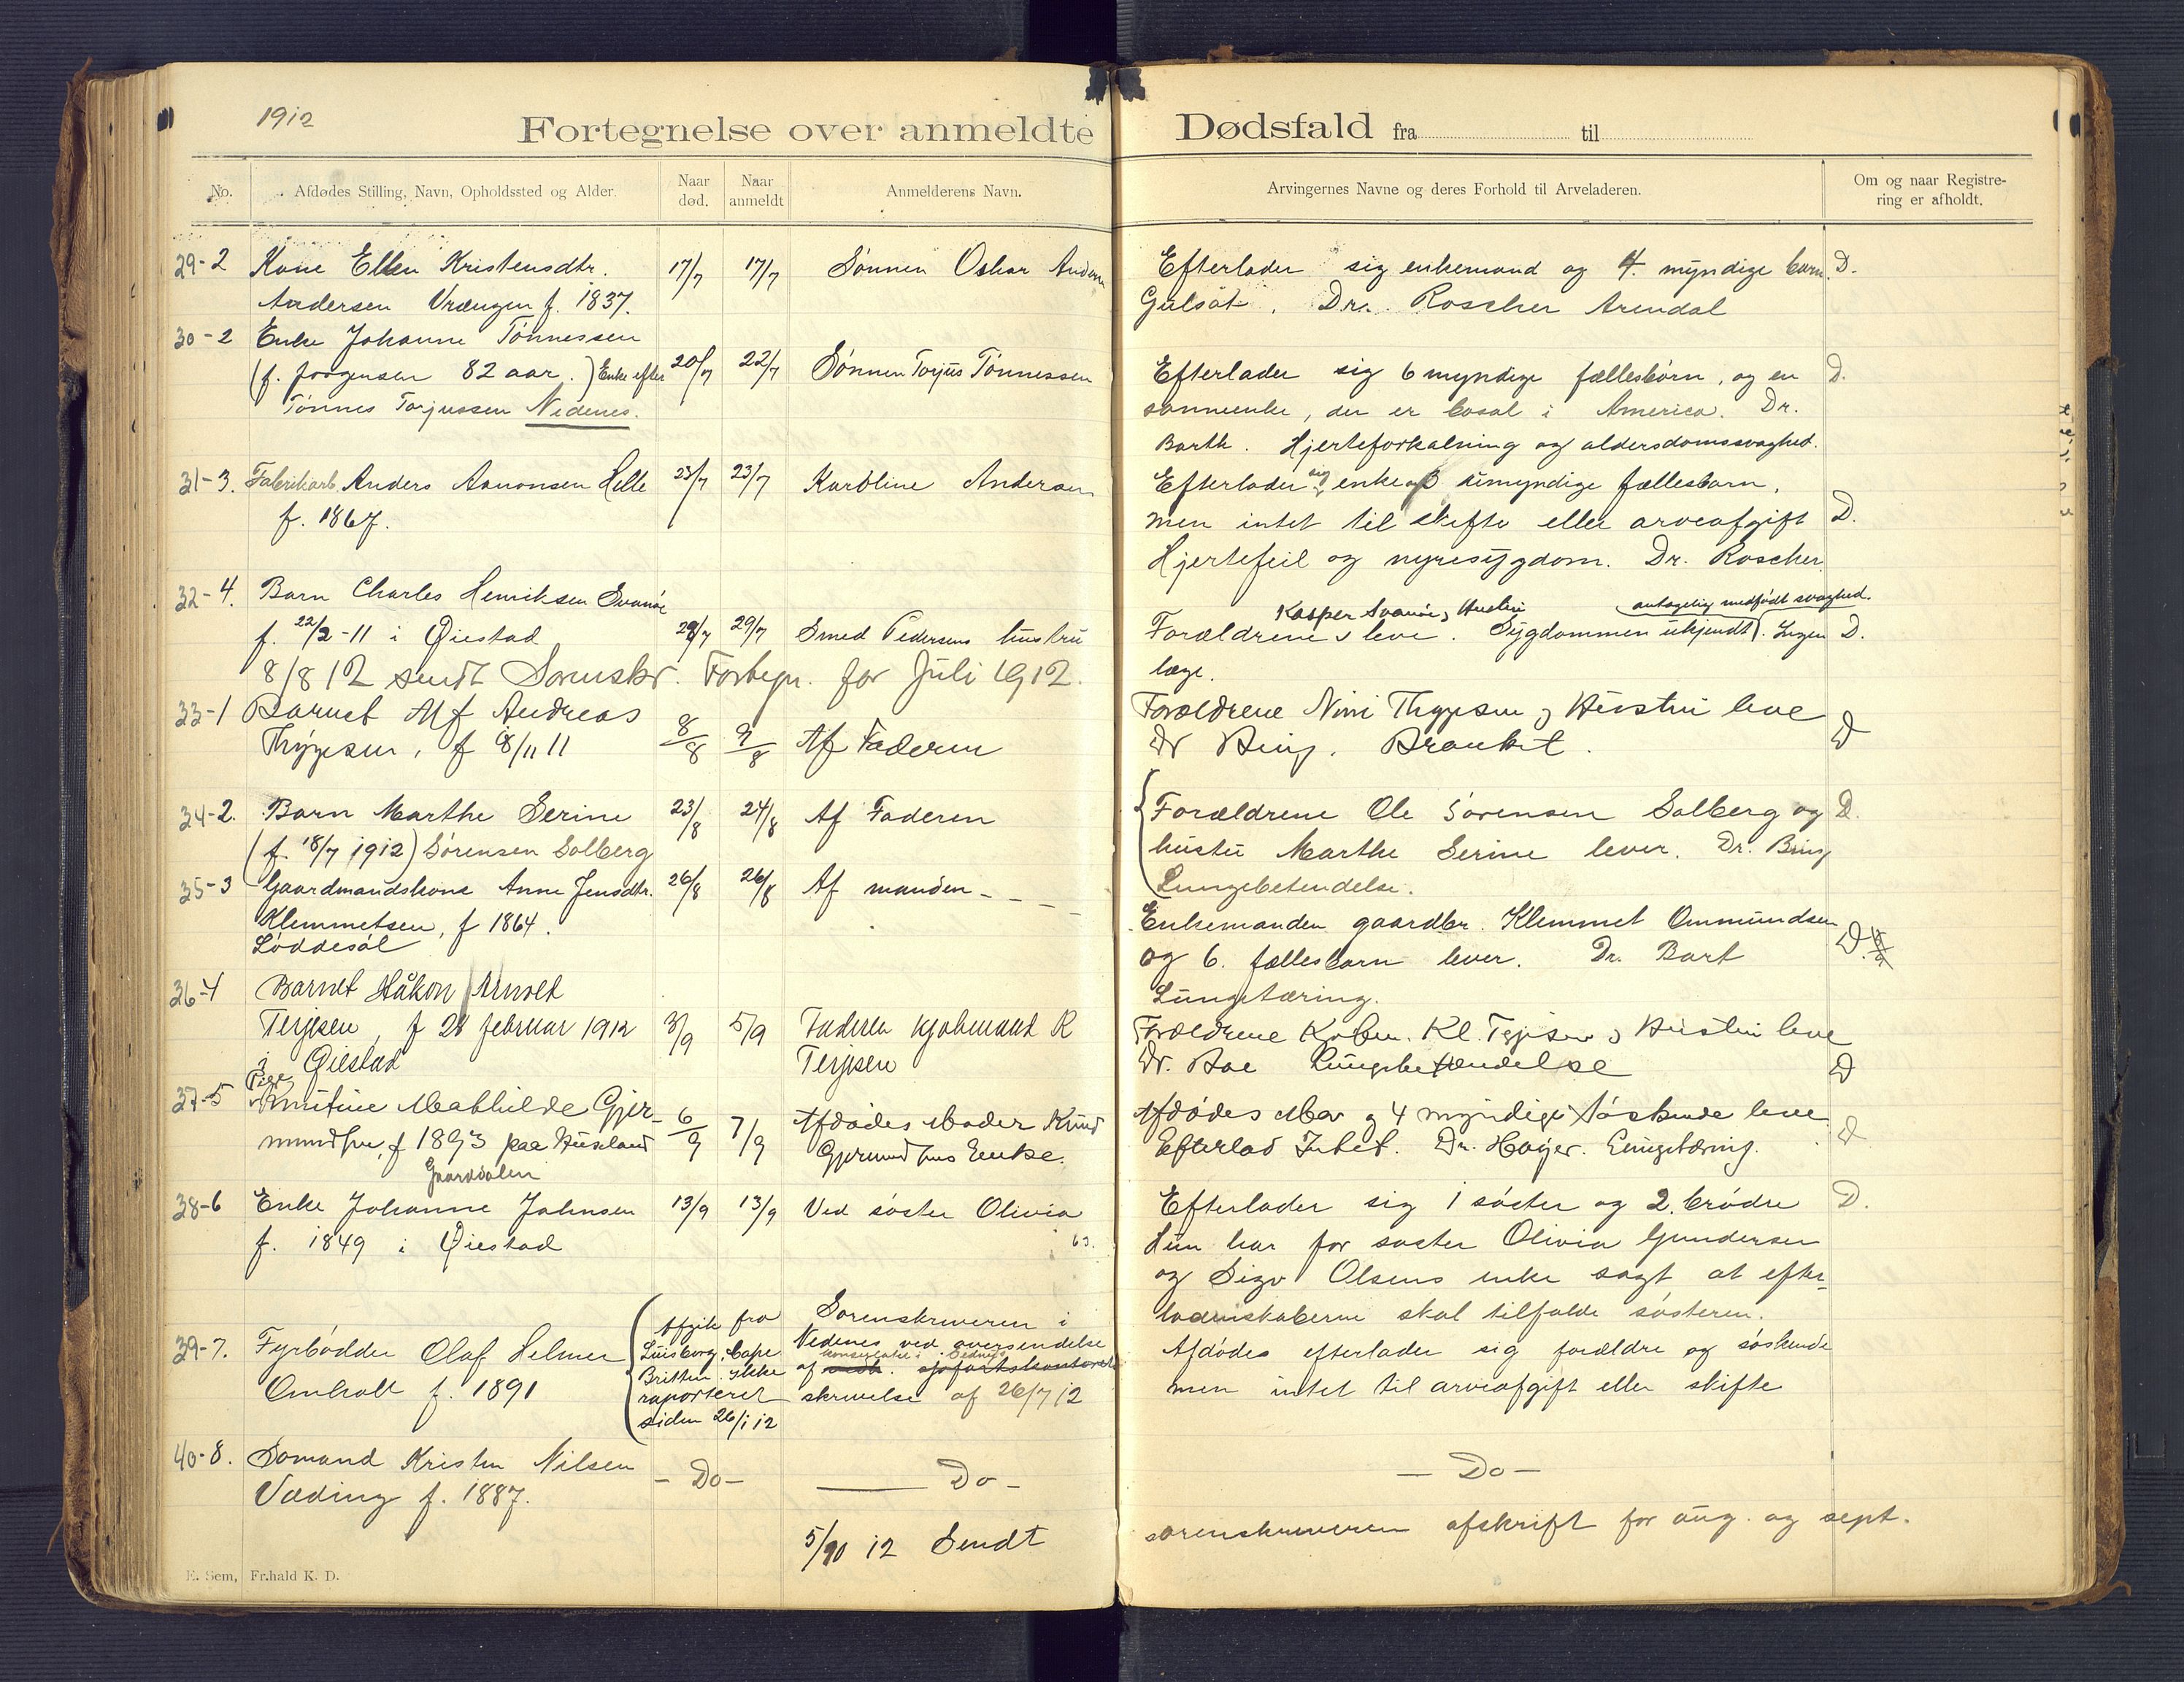 1912
Fortegnelse over anmeldte Dødsfald fra til
No. Afdødes Stilling, Navn, Opholdssted og Alder. Naar død. Naar anmeldt Anmelderens Navn. Arvingernes Navne og deres Forhold til Arveladeren. Om og naar Registrering er afholdt.
29-2 Kone Ellen Kristensdtr. 17/7 17/7 Sønnen Oskar Efterlader sig enkemand og 4. myndige barn. D.
Andersen Vrængen f. 1837. Gulsot. Dr. Roscher Arendal
30-2 Enke Johanne Tønnessen
(f. Jørgensen 82 aar.) Enke efter 20/7 22/7 Sønnen Torjus Tønnessen Efterlader sig 6 myndige fællesbørn, og en D.
Tønnes Torjussen Nedenes. sønneenke, der er bosat i America. Dr.
Barth. Hjerteforkalning og aldersdomssvaghed.
31-3. Fabrikarb. Anders Aanonsen Helle 23/7 23/7 Karoline Andersen Efterlader sig enke og 3 umyndige fællesbarn,
f. 1867. men intet til skifte eller arveafgift D.
Hjertefeil og nyresygdom. Dr. Roscher.
32-4. Barn Charles Henriksen Svanøe Kasper Svanøe, Hustru antagelig medfødt svaghed.
f. 22/2-11 i Øiestad 29/7 29/7 Smed Pedersens hustru Forældrene leve. Sygdommen ukjendt). Ingen D.
læge.
8/8 12 sendt Sorenskr. Fortegn. for Juli 1912.
33-1 Barnet Alf Andreas Forældrene Thygesen og Hustru leve
Thygesen, f 8/11 11 8/8 9/8 Af Faderen Dr Bing. Bronkit. D
34-2. Barn Marthe Serine 23/8 24/8 Af Faderen Forældrene Ole Sørensen Solberg og D.
(f. 18/7 1912) Sørensen Solberg hustru Marthe Serine lever. Dr. Bing
Lungebetendelse.
35-3 Gaardmandskone Anne Jensdtr. 26/8 26/8 Af manden
Klemmetsen, f 1864. Enkemanden gaardbr. Klemmet Ommundsen
Løddesøl og 6. fællesbarn lever. Dr. Bart D.
Lungetæring.
36-4 Barnet Håkon Arnold
Terjesen, f 28 februar 1912 3/9 5/9 Faderen kjøbmand K Forældrene Kjøbm. Kl. Terjesen og Hustru leve
i Øiestad Terjesen Dr. Boe Lungebetændelse D
37-5 Pige Kristine Mathilde Gjer- 6/9 7/9 Afdødes Moder Knud Afdødes Mor og 4 myndige Søskende leve
mundhus, f 1893 paa Huseland Gjermundhus Enke. Efterlod Intet. Dr. Høyer. Lungetæring. D
Gaarddalen
38-6 Enke Johanne Johnsen 13/9 13/9 Ved søster Olivia Efterlader sig 1 søster og 2 brødre D.
f. 1849 i Øiestad 63. Hun har for søster Olivia Gundersen
og Sigv Olsens enke sagt at efter-
ladenskaberne skal tilfalde søsteren.
39-7. Fyrbødder Olaf Helmer Afgik fra Sorenskriveren i Afdødes efterlader sig forældre og søskende
Omholt f. 1891 Luisborg, Cape Nedenes ved oversendelse men intet til arveafgift eller skifte
Britten. Ikke af konsulatet i Sidneys sjøfartskontorets
raporteret skrivelse af 26/7 12
siden 26/1 12
40-8. Sømand Kristen Nilsen - Do - Do - - Do -
Væding f. 1887.
5/10 12 Sendt sorenskriveren afskrift for aug. og sept.
E. Sem, Fr.hald K. D.